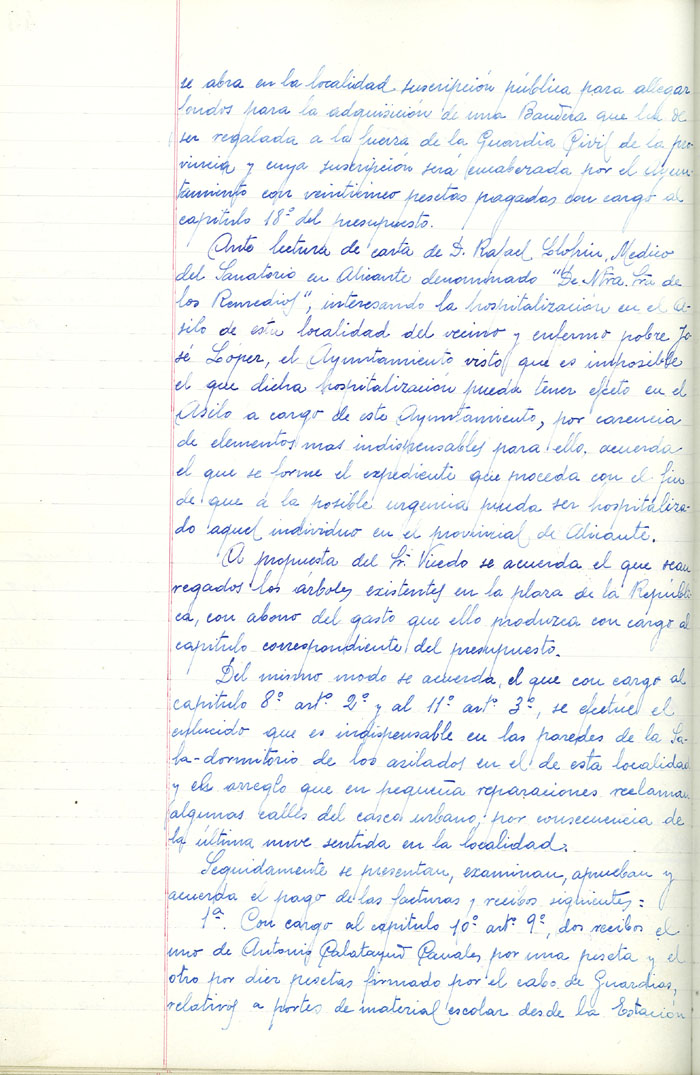 se abra en la localidad suscripción pública para allegar
fondos para la adquisición de una Bandera que ha de
ser regalada a la fuerza de la Guardia Civil de la pro-
vincia y cuya suscripción será encabezada por el Ayun-
tamiento con veinticinco pesetas pagadas con cargo al
capítulo 18º del presupuesto.
Dado lectura de carta de D. Rafael Llopin, Medico
del Sanatorio en Alicante denominado "De Ntra. Sra de
los Remedios", interesando la hospitalización en el A-
silo de esta localidad del vecino y enfermo pobre Jo-
sé López, el Ayuntamiento visto que es imposible
el que dicha hospitalización pueda tener efeto en el
Asilo a cargo de este Ayuntamiento, por carencia
de elementos mas indispensables para ello, acuerda
el que se forme el expediente que proceda con el fin
de que a la posible urgencia pueda ser hospitaliza-
do aquel individuo en el provincial de Alicante.
A propuesta del Sr. Visedo se acuerda el que sean
regados los árboles existentes en la plaza de la Repúbli-
ca, con abono del gasto que ello produzca con cargo al
capítulo correspondiente del presupuesto.
Del mismo modo se acuerda, el que con cargo al
capítulo 8º artº 2º y al 11º artº 3º, se efectúe el
enlucido que es indispensable en las paredes de la Sa-
la-dormitorio de los asilados en el de esta localidad
y el arreglo que en pequeña reparaciones reclaman
algunas calles del casco urbano, por consecuencia de
la última nieve sentida en la localidad.
Seguidamente se presentan, examinan, aprueban y
acuerda el pago de las facturas y recibos siguientes:
1ª. Con cargo al capítulo 10º artº 9º, dos recibos el
uno de Antonio Calatayud Canales por una peseta y el
otro por diez pesetas firmado por el cabo de Guardias,
relativos a portes de material escolar desde la Estación